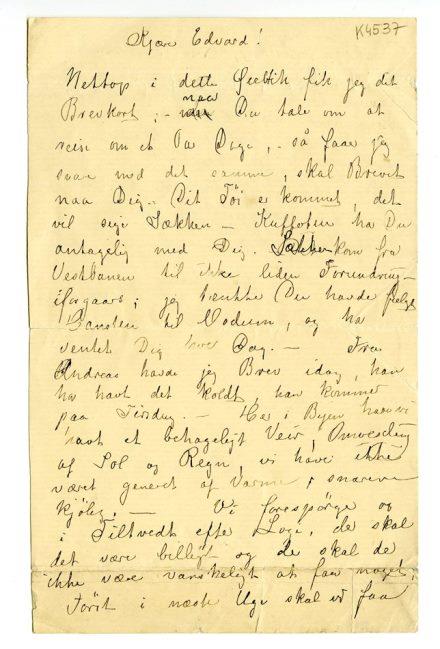 K4537
Kjære Edvard!
Nettop i dette Øieblik fik jeg dit
Brevkort, - naar Du tale om at
reise om et Par Dage, - så faar jeg
svare med det samme, skal Brevet
naa Dig. Dit Töi er kommet, det
vil sige Sækken - Kufferten har Du
antagelig med Dig. Sækken kom fra
Vestbanen til ikke liden Forundring
iforgaars; jeg tænkte Du havde følgt
til Modum, og ha
ventet Dig hver Dag. - Fra
Andreas havde jeg Brev idag, han
har havt det koldt, han kommer
paa Tirsdag. - Her i Byen have vi
havt et behageligt Veir, Omvexling
af Sol og Regn, vi have ikke
været generet af Varme, snarere
kjølig. - Vi forespörge os
i Tiltvedt efter Logi, de skal
det være billigt og de skal de
ikke være vanskeligt at faa noget,
Först i næste Uge skal vi faa